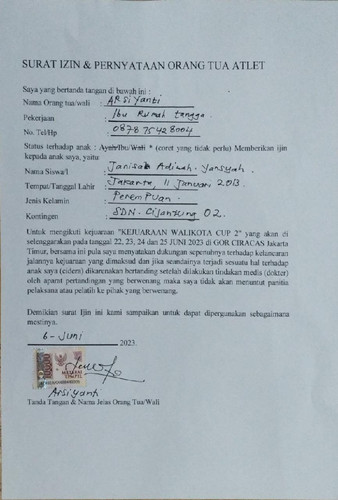 SURAT IZIN & PERNYATAAN ORANG TUA ATLET
Saya yang bertanda tangan di bawah ini :
Nama Orang tua/wali : ARSIYanti
Pekerjaan : Ibu Rumah tangga
No. Tel/Hp : 087875428004
Status terhadap anak : Ayah/Ibu/Wali * (coret yang tidak perlu) Memberikan ijin
kepada anak saya, yaitu
Nama Siswa/i : Adizah Yansyah
Tempat/Tanggal Lahir : Jakarta, 11 Januari 2013
Jenis Kelamin : PeremPuan
Kontingen : SDN. Cijantung 02
Untuk mengikuti kejuaraan "KEJUARAAN WALIKOTA CUP 2" yang akan di
selenggarakan pada tanggal 22, 23, 24 dan 25 JUNI 2023 di GOR CIRACAS Jakarta
Timur, bersama ini pula saya menyatakan dukungan sepenuhnya terhadap kelancaran
jalannya kejuaraan yang dimaksud dan jika seandainya terjadi sesuatu hal terhadap
anak saya (ciders) dikarenakan bertanding setelah dilakukan tindakan medis (dokter)
oleh aparat pertandingan yang berwenang maka saya tidak akan menuntut panitia
pelaksana atau pelatih ke pihak yang berwenang.
Demikian surat Ijin ini kami sampaikan untuk dapat dipergunakan sebagaimana
mestinya.
6 - Juni 2023
10000
METERAI
TEMPEL
Arsiyanti
Tanda Tangan & Nama Jelas Orang Tua/Wali